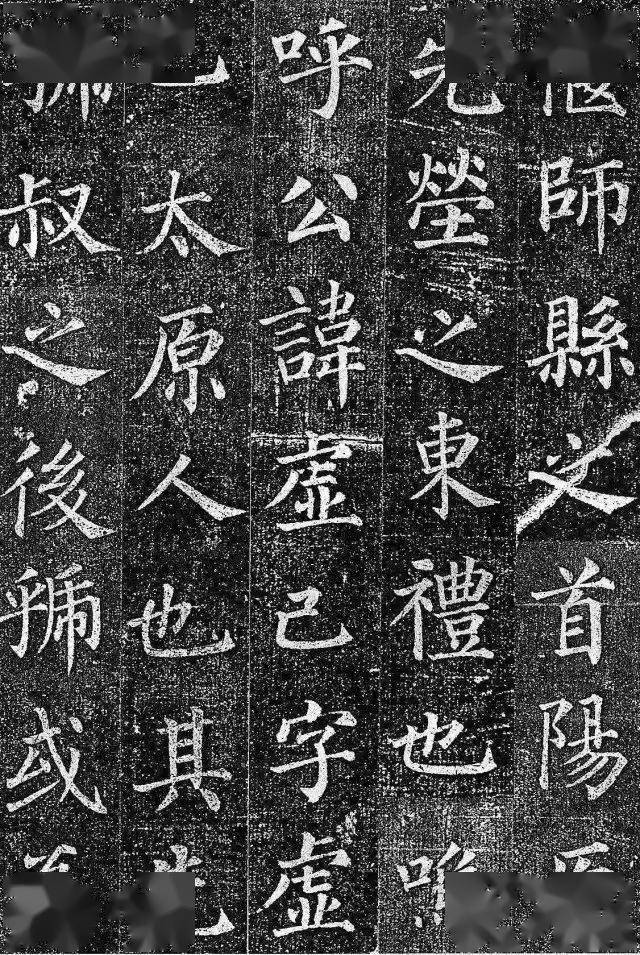 師縣之首陽
先塋之東禮也嗚
呼公諱虛己字虛
太原人也其先
叔之後虢或